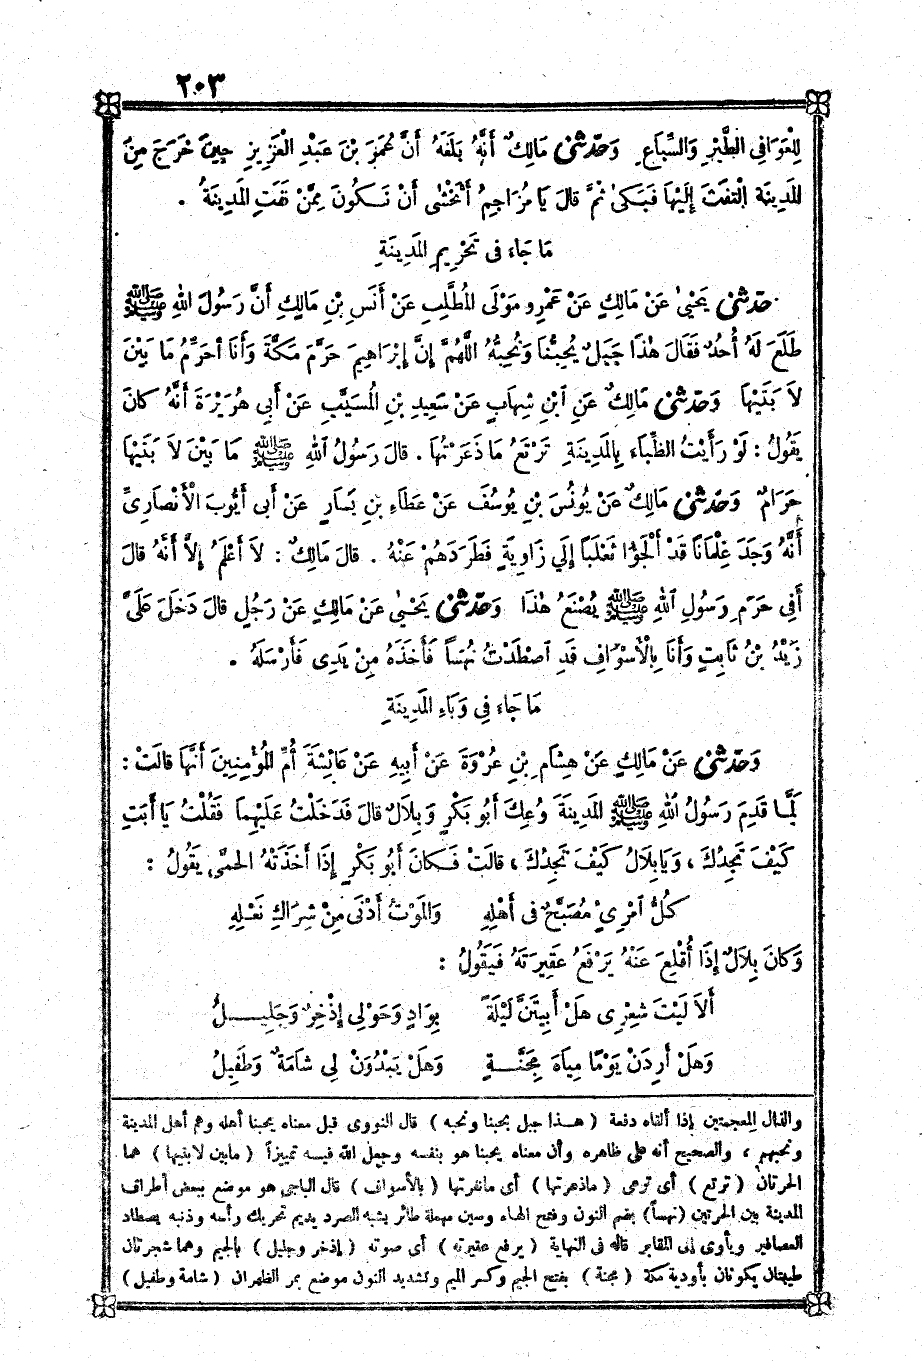 ٢٠٣
لِلْعَوَافِى الطَّيْرِ وَالسِّبَاعِ وَحَدَّثَنِى مَالِكٌ أَنَّهُ بَلَغَهُ أَنَّ عُمَرَ بْنَ عَبْدِ الْعَزِيزِ حِينَ خَرَجَ مِنَ
الْمَدِينَةِ الْتَفَتَ إِلَيْهَا فَبَكَىٰ ثُمَّ قَالَ يَا مُزَاحِمُ أَتَخْشَى أَنْ نَكُونَ مِمَّنْ نَفَتِ الْمَدِينَةُ .
مَا جَاءَ فى تَحْرِيمِ الْمَدِينَةِ
حَدَّثَنِى يَحْيَىٰ عَنْ مَالِكٍ عَنْ عَمْرٍو مَوْلَى الْمُطَّلِبِ عَنْ أَنَسِ بْنِ مَالِكٍ أَنَّ رَسُولَ اللهِ ﷺ
طَلَعَ لَهُ أُحُدٌ فَقَالَ هٰذَا جَبَلٌ يُحِبُّنَا وَنُحِبُّهُ اللَّهُمَّ إِنَّ إِبْرَاهِيمَ حَرَّمَ مَكَّةَ وَأَنَا أُحَرِّمُ مَا بَيْنَ
لَا بَتَيْهَا وَحَدَّثَنِى مَالِكٌ عَنِ ابْنِ شِهَابٍ عَنْ سَعِيدِ بْنِ الْمُسَيَّبِ عَنْ أَبِى هُرَيْرَةَ أَنَّهُ كَانَ
يَقُولُ : لَوْ رَأَيْتُ الظِّبَاءَ بِالْمَدِينَةِ تَرْتَعُ مَا ذَعَرْتُهَا . قَالَ رَسُولُ اللهِ ﷺ مَا بَيْنَ لَا بَتَيْهَا
حَرَامٌ وَحَدَّثَنِى مَالِكٌ عَنْ يُونُسَ بْنِ يُوسُفَ عَنْ عَطَاءِ بْنِ يَسَارٍ عَنْ أَبِى أَيُّوبَ الْأَنْصَارِىِّ
أَنَّهُ وَجَدَ غِلْمَانًا قَدْ أَلْجَؤُا ثَعْلَبًا إِلَى زَاوِيَةٍ فَطَرَدَهُمْ عَنْهُ . قَالَ مَالِكٌ : لَا أَعْلَمُ إِلَّا أَنَّهُ قَالَ
أَفِى حَرَمِ رَسُولِ اللهِ ﷺ يُصْنَعُ هٰذَا وَحَدَّثَنِى يَحْيَىٰ عَنْ مَالِكٍ عَنْ رَجُلٍ قَالَ دَخَلَ عَلَىَّ
زَيْدُ بْنُ ثَابِتٍ وَأَنَا بِالْأَسْوَافِ قَدِ اصْطَدْتُ نُهَسًا فَأَخَذَهُ مِنْ يَدِى فَأَرْسَلَهُ .
مَا جَاءَ فِى وَبَاءِ الْمَدِينَةِ
وَحَدَّثَنِى عَنْ مَالِكٍ عَنْ هِشَامِ بْنِ عُرْوَةَ عَنْ أَبِيهِ عَنْ عَائِشَةَ أُمِّ الْمُؤْمِنِينَ أَنَّهَا قَالَتْ :
لَمَّا قَدِمَ رَسُولُ اللهِ ﷺ الْمَدِينَةَ وُعِكَ أَبُو بَكْرٍ وَبِلَالٌ قَالَ فَدَخَلْتُ عَلَيْهِمَا فَقُلْتُ يَا أَبَتِ
كَيْفَ تَجِدُكَ ، وَيَابِلَالُ كَيْفَ تَجِدُكَ ، قَالَتْ فَكَانَ أَبُو بَكْرٍ إِذَا أَخَذَتْهُ الْحُمَّى يَقُولُ :
كُلُّ امْرِىٍ مُصَبَّحٌ فى أَهْلِهِ وَالْمَوْتُ أَدْنَى مِنْ شِرَاكِ نَعْلِهِ
وَكَانَ بِلَالٌ إِذَا أُقْلِعَ عَنْهُ يَرْفَعُ عَقِيرَتَهُ فَيَقُولُ :
أَلَا لَيْتَ شِعْرِى هَلْ أَبِيتَنَّ لَيْلَةً بِوَادٍ وَحَوْلِى إِذْخِرٌ وَجَلِيلُ
وَهَلْ أَرِدَنْ يَوْمًا مِيَاهَ مَجَنَّةٍ وَهَلْ يَبْدُوَنْ لِى شَامَةٌ وَطَفِيلُ
والقال للمعجمتين إذا ألقاه دفعة ( هذا جبل يحبنا ونحبه ) قال النووى قيل معناه يحبنا أهله وهم أهل المدينة
ونحبهم ، والصحيح أنه على ظاهره وأن معناه يحبنا هو بنفسه وجعل الله فيه تمييزاً ( مابين لابتيها ) هما
الحرتان ( ترتع ) أى ترعى ( ماذعرتها ) أى مانفرتها ( بالأسواف ) قال الباجى هو موضع ببعض أطراف
المدينة بين الحرتين (نهسا) بضم النون وفتح الهاء وسين مهملة طائر يشبه الصرد يديم تحريك رأسه وذنبه يصطاد
العصافير ويأوى إلى المقابر قاله فى النهاية ( يرفع عقيرته ) أى صوته ( إذخر وجليل ) بالجيم وهما شجرتان
طيبتان يكونان بأودية مكة ( مجنة ) بفتح الجيم وكسر الميم وتشديد النون موضع بمر الظهران ( شامة وطفيل )